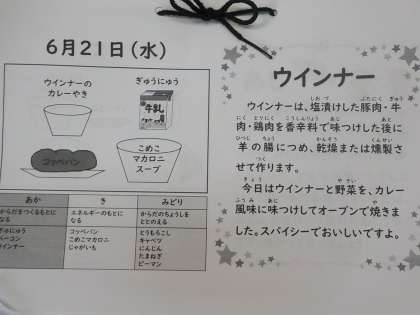 6月21日(水)
ウインナーの
カレーやき
ぎゅうにゅう
牛乳
コッペパン
こめこ
マカロニ
スープ
あか き みどり
からだをつくるもとに
なる
エネルギーのもとに
なる
からだのちょうしを
ととのえる
ぎゅうにゅう
ベーコン
ウインナー
コッペパン
こめこマカロニ
じゃがいも
とうもろこし
キャベツ
にんじん
たまねぎ
ピーマン
ウインナー
ウインナーは、塩漬けした豚肉・牛
肉・鶏肉を香辛料で味つけした後に
羊の腸につめ、乾燥または燻製さ
せて作ります。
今日はウインナーと野菜を、カレー
風味に味つけしてオーブンで焼きま
した。スパイシーでおいしいですよ。